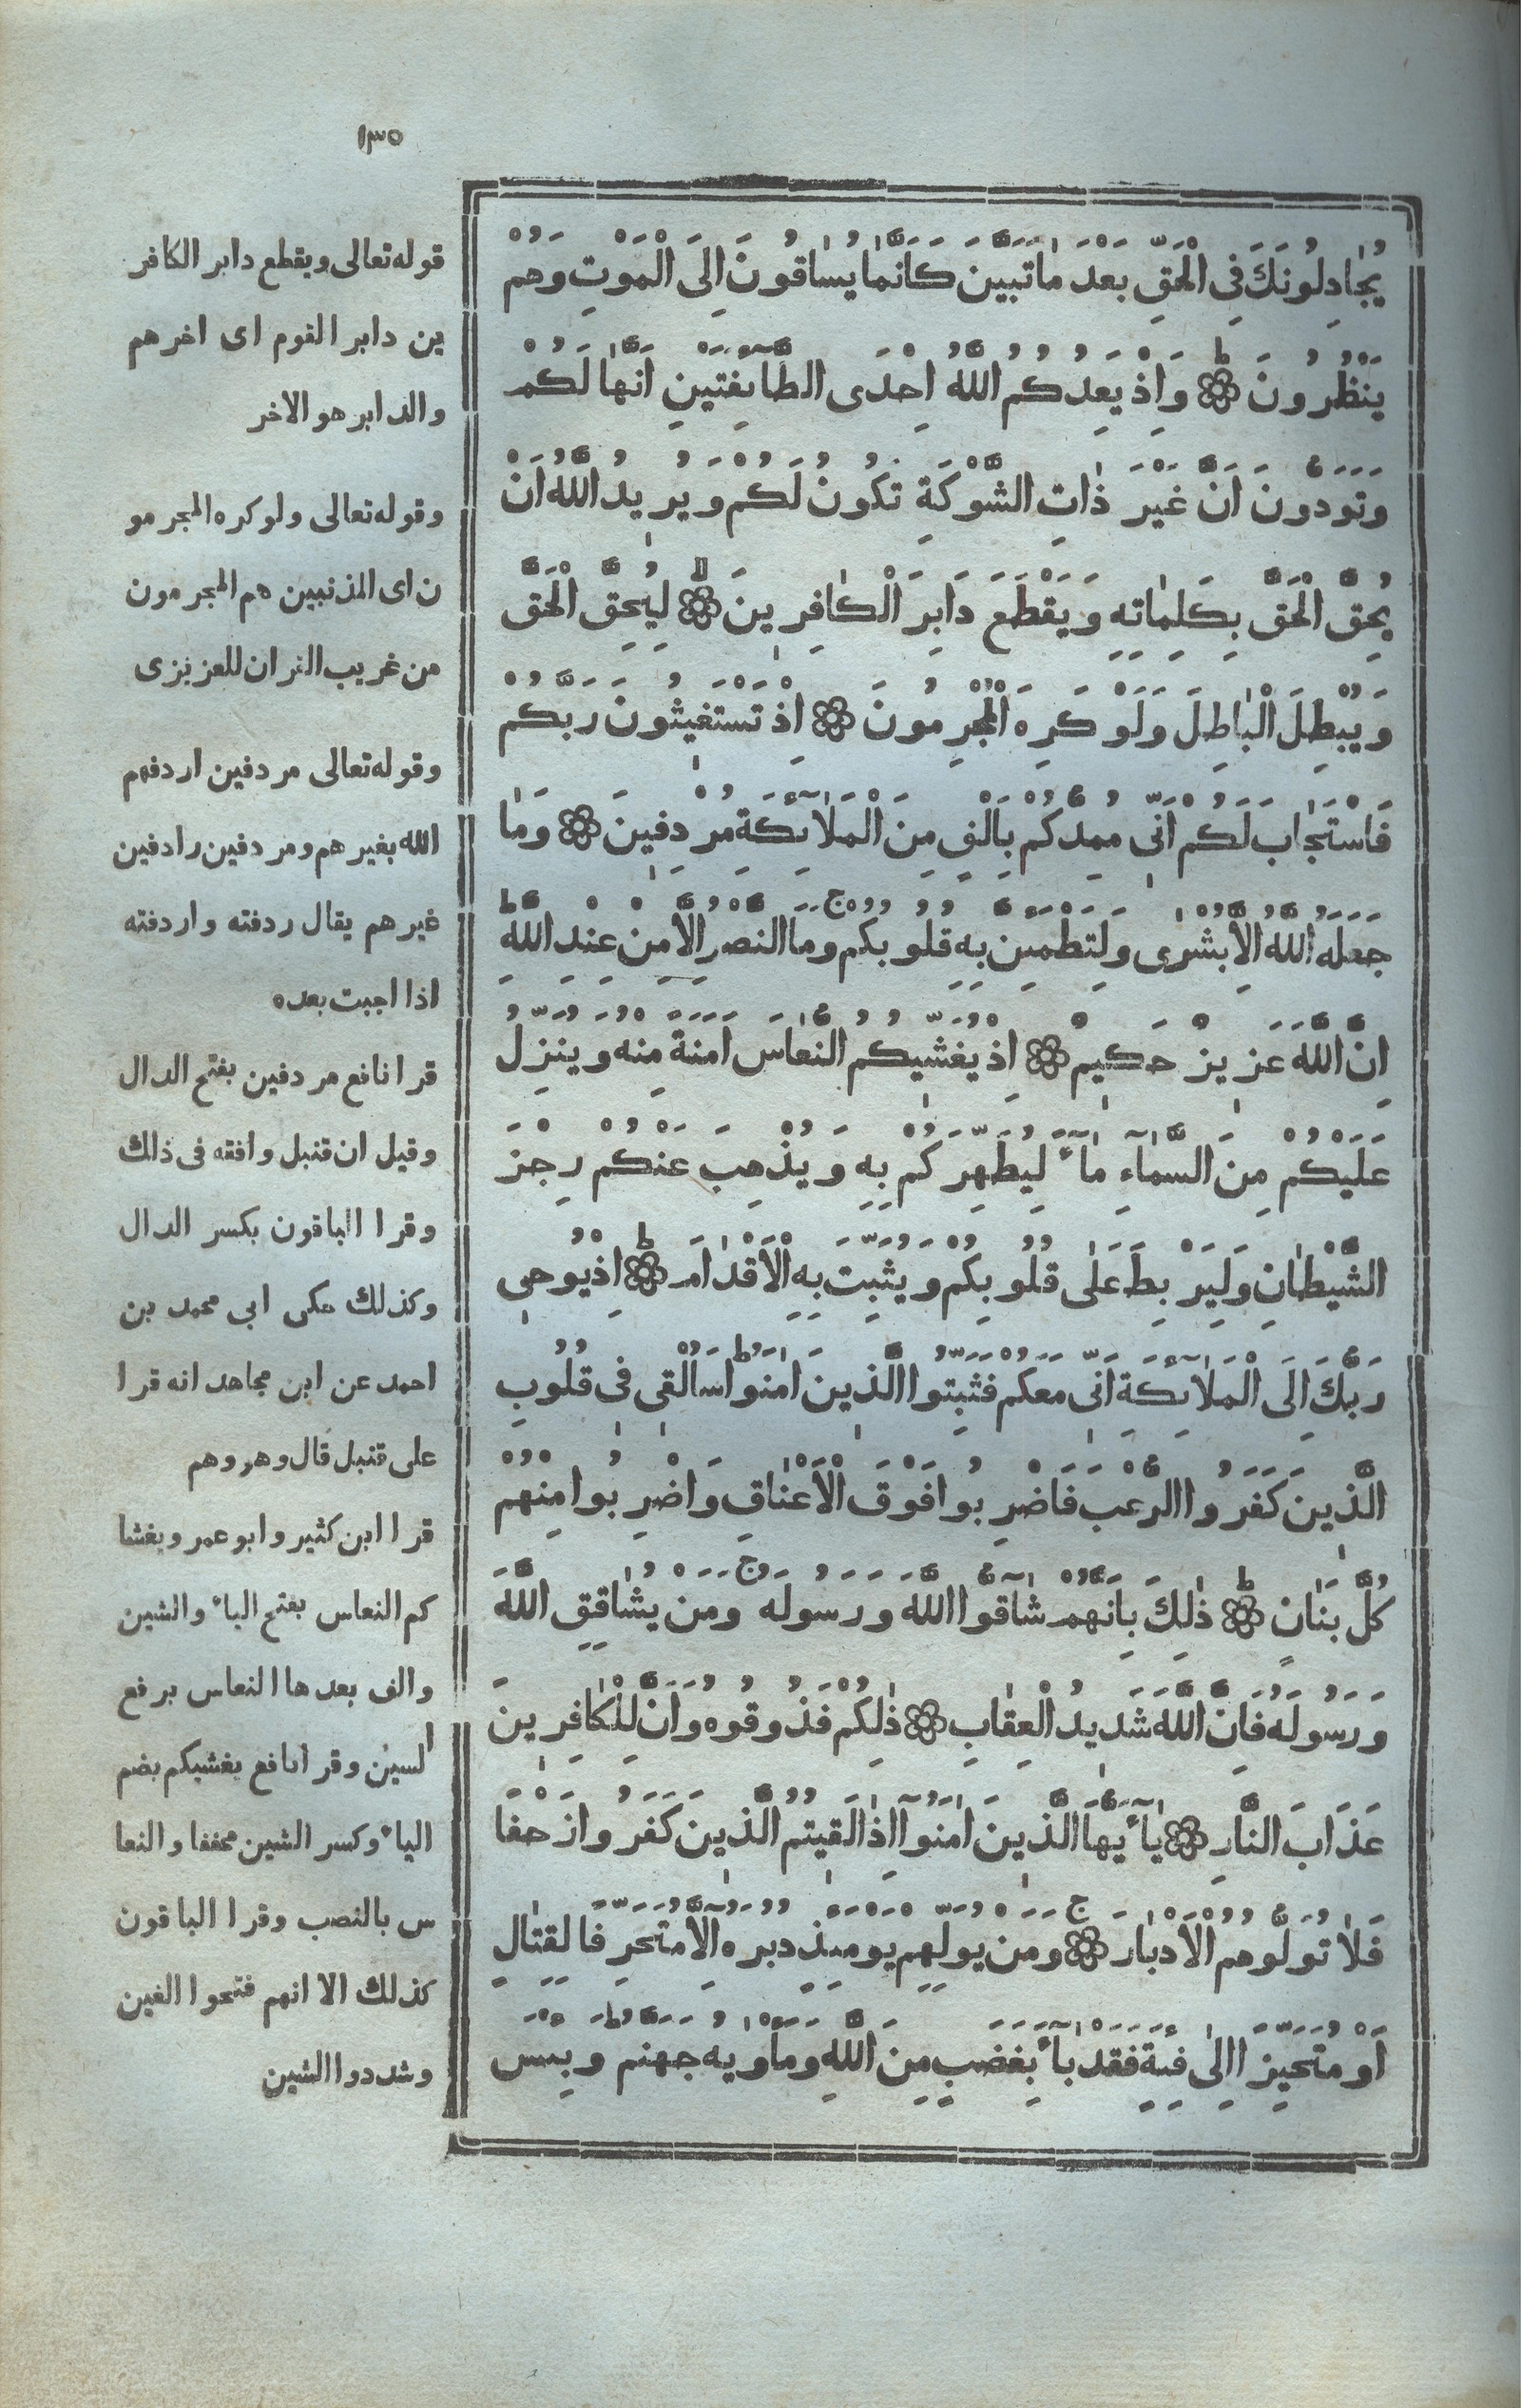 ١٣٥
يُجَادِلُونَكَ فِى الْحَقِّ بَعْدَ مَا تَبَيَّنَ كَاَنَّمَا يُسَاقُونَ اِلَى الْمَوْتِ وَهُمْ
يَنْظُرُونَ ۞ وَاِذْ يَعِدُكُمُ اللّٰهُ اِحْدَى الطَّآئِفَتَيْنِ اَنَّهَا لَكُمْ
وَتَوَدُّونَ اَنَّ غَيْرَ ذَاتِ الشَّوْكَةِ تَكُونُ لَكُمْ وَيُرِيدُ اللّٰهُ اَنْ
يُحِقَّ الْحَقَّ بِكَلِمَاتِهِ وَيَقْطَعَ دَابِرَ الْكَافِرِينَ ۞ لِيُحِقَّ الْحَقَّ
وَيُبْطِلَ الْبَاطِلَ وَلَوْ كَرِهَ الْمُجْرِمُونَ ۞ اِذْ تَسْتَغِيثُونَ رَبَّكُمْ
فَاسْتَجَابَ لَكُمْ اَنِّى مُمِدُّكُمْ بِاَلْفٍ مِنَ الْمَلَآئِكَةِ مُرْدِفِينَ ۞ وَمَا
جَعَلَهُ اللّٰهُ اِلَّا بُشْرَى وَلِتَطْمَئِنَّ بِهِ قُلُوبُكُمْ وَمَا النَّصْرُ اِلَّا مِنْ عِنْدِ اللّٰهِ
اِنَّ اللّٰهَ عَزِيزٌ حَكِيمٌ ۞ اِذْ يُغَشِّيكُمُ النُّعَاسَ اَمَنَةً مِنْهُ وَيُنَزِّلُ
عَلَيْكُمْ مِنَ السَّمَآءِ مَآءً لِيُطَهِّرَكُمْ بِهِ وَيُذْهِبَ عَنْكُمْ رِجْزَ
الشَّيْطَانِ وَلِيَرْبِطَ عَلَى قُلُوبِكُمْ وَيُثَبِّتَ بِهِ الْاَقْدَامَ ۞ اِذْ يُوحِى
رَبُّكَ اِلَى الْمَلَآئِكَةِ اَنِّى مَعَكُمْ فَثَبِّتُوا الَّذِينَ اٰمَنُوا سَاُلْقِى فِى قُلُوبِ
الَّذِينَ كَفَرُوا الرُّعْبَ فَاضْرِبُوا فَوْقَ الْاَعْنَاقِ وَاضْرِبُوا مِنْهُمْ
كُلَّ بَنَانٍ ۞ ذٰلِكَ بِاَنَّهُمْ شَآقُّوا اللّٰهَ وَرَسُولَهُ وَمَنْ يُشَاقِقِ اللّٰهَ
وَرَسُولَهُ فَاِنَّ اللّٰهَ شَدِيدُ الْعِقَابِ ۞ ذٰلِكُمْ فَذُوقُوهُ وَاَنَّ لِلْكَافِرِينَ
عَذَابَ النَّارِ ۞ يَآ اَيُّهَا الَّذِينَ اٰمَنُوآ اِذَا لَقِيتُمُ الَّذِينَ كَفَرُوا زَحْفًا
فَلَا تُوَلُّوهُمُ الْاَدْبَارَ ۞ وَمَنْ يُوَلِّهِمْ يَوْمَئِذٍ دُبُرَهُ اِلَّا مُتَحَرِّفًا لِقِتَالٍ
اَوْ مُتَحَيِّزًا اِلَى فِئَةٍ فَقَدْ بَآءَ بِغَضَبٍ مِنَ اللّٰهِ وَمَأْوَيهُ جَهَنَّمُ وَبِئْسَ
قوله تعالى ويقطع دابر الكافر
ين دابر القوم اى اخرهم
والدابر هو الاخر
وقوله تعالى ولو كره المجرمو
ن اى المذنبين هم المجرمون
من غريب القران للعزيزى
وقوله تعالى مردفين اردفهم
الله بغيرهم ومردفين رادفين
غيرهم يقال ردفته واردفته
اذا اجبت بعده
قرا نافع مردفين بفتح الدال
وقيل ان قنبل وافقه فى ذلك
وقرا الباقون بكسر الدال
وكذلك حكى ابى محمد بن
احمد عن ابن مجاهد انه قرا
على قنبل قال وهو وهم
قرا ابن كثير وابو عمر ويغشا
كم النعاس بفتح الياء والشين
والف بعدها النعاس برفع
السين وقرا نافع يغشيكم بضم
الياء وكسر الشين مخففا والنعا
س بالنصب وقرا الباقون
كذلك الا انهم فتحوا الغين
وشددوا الشين